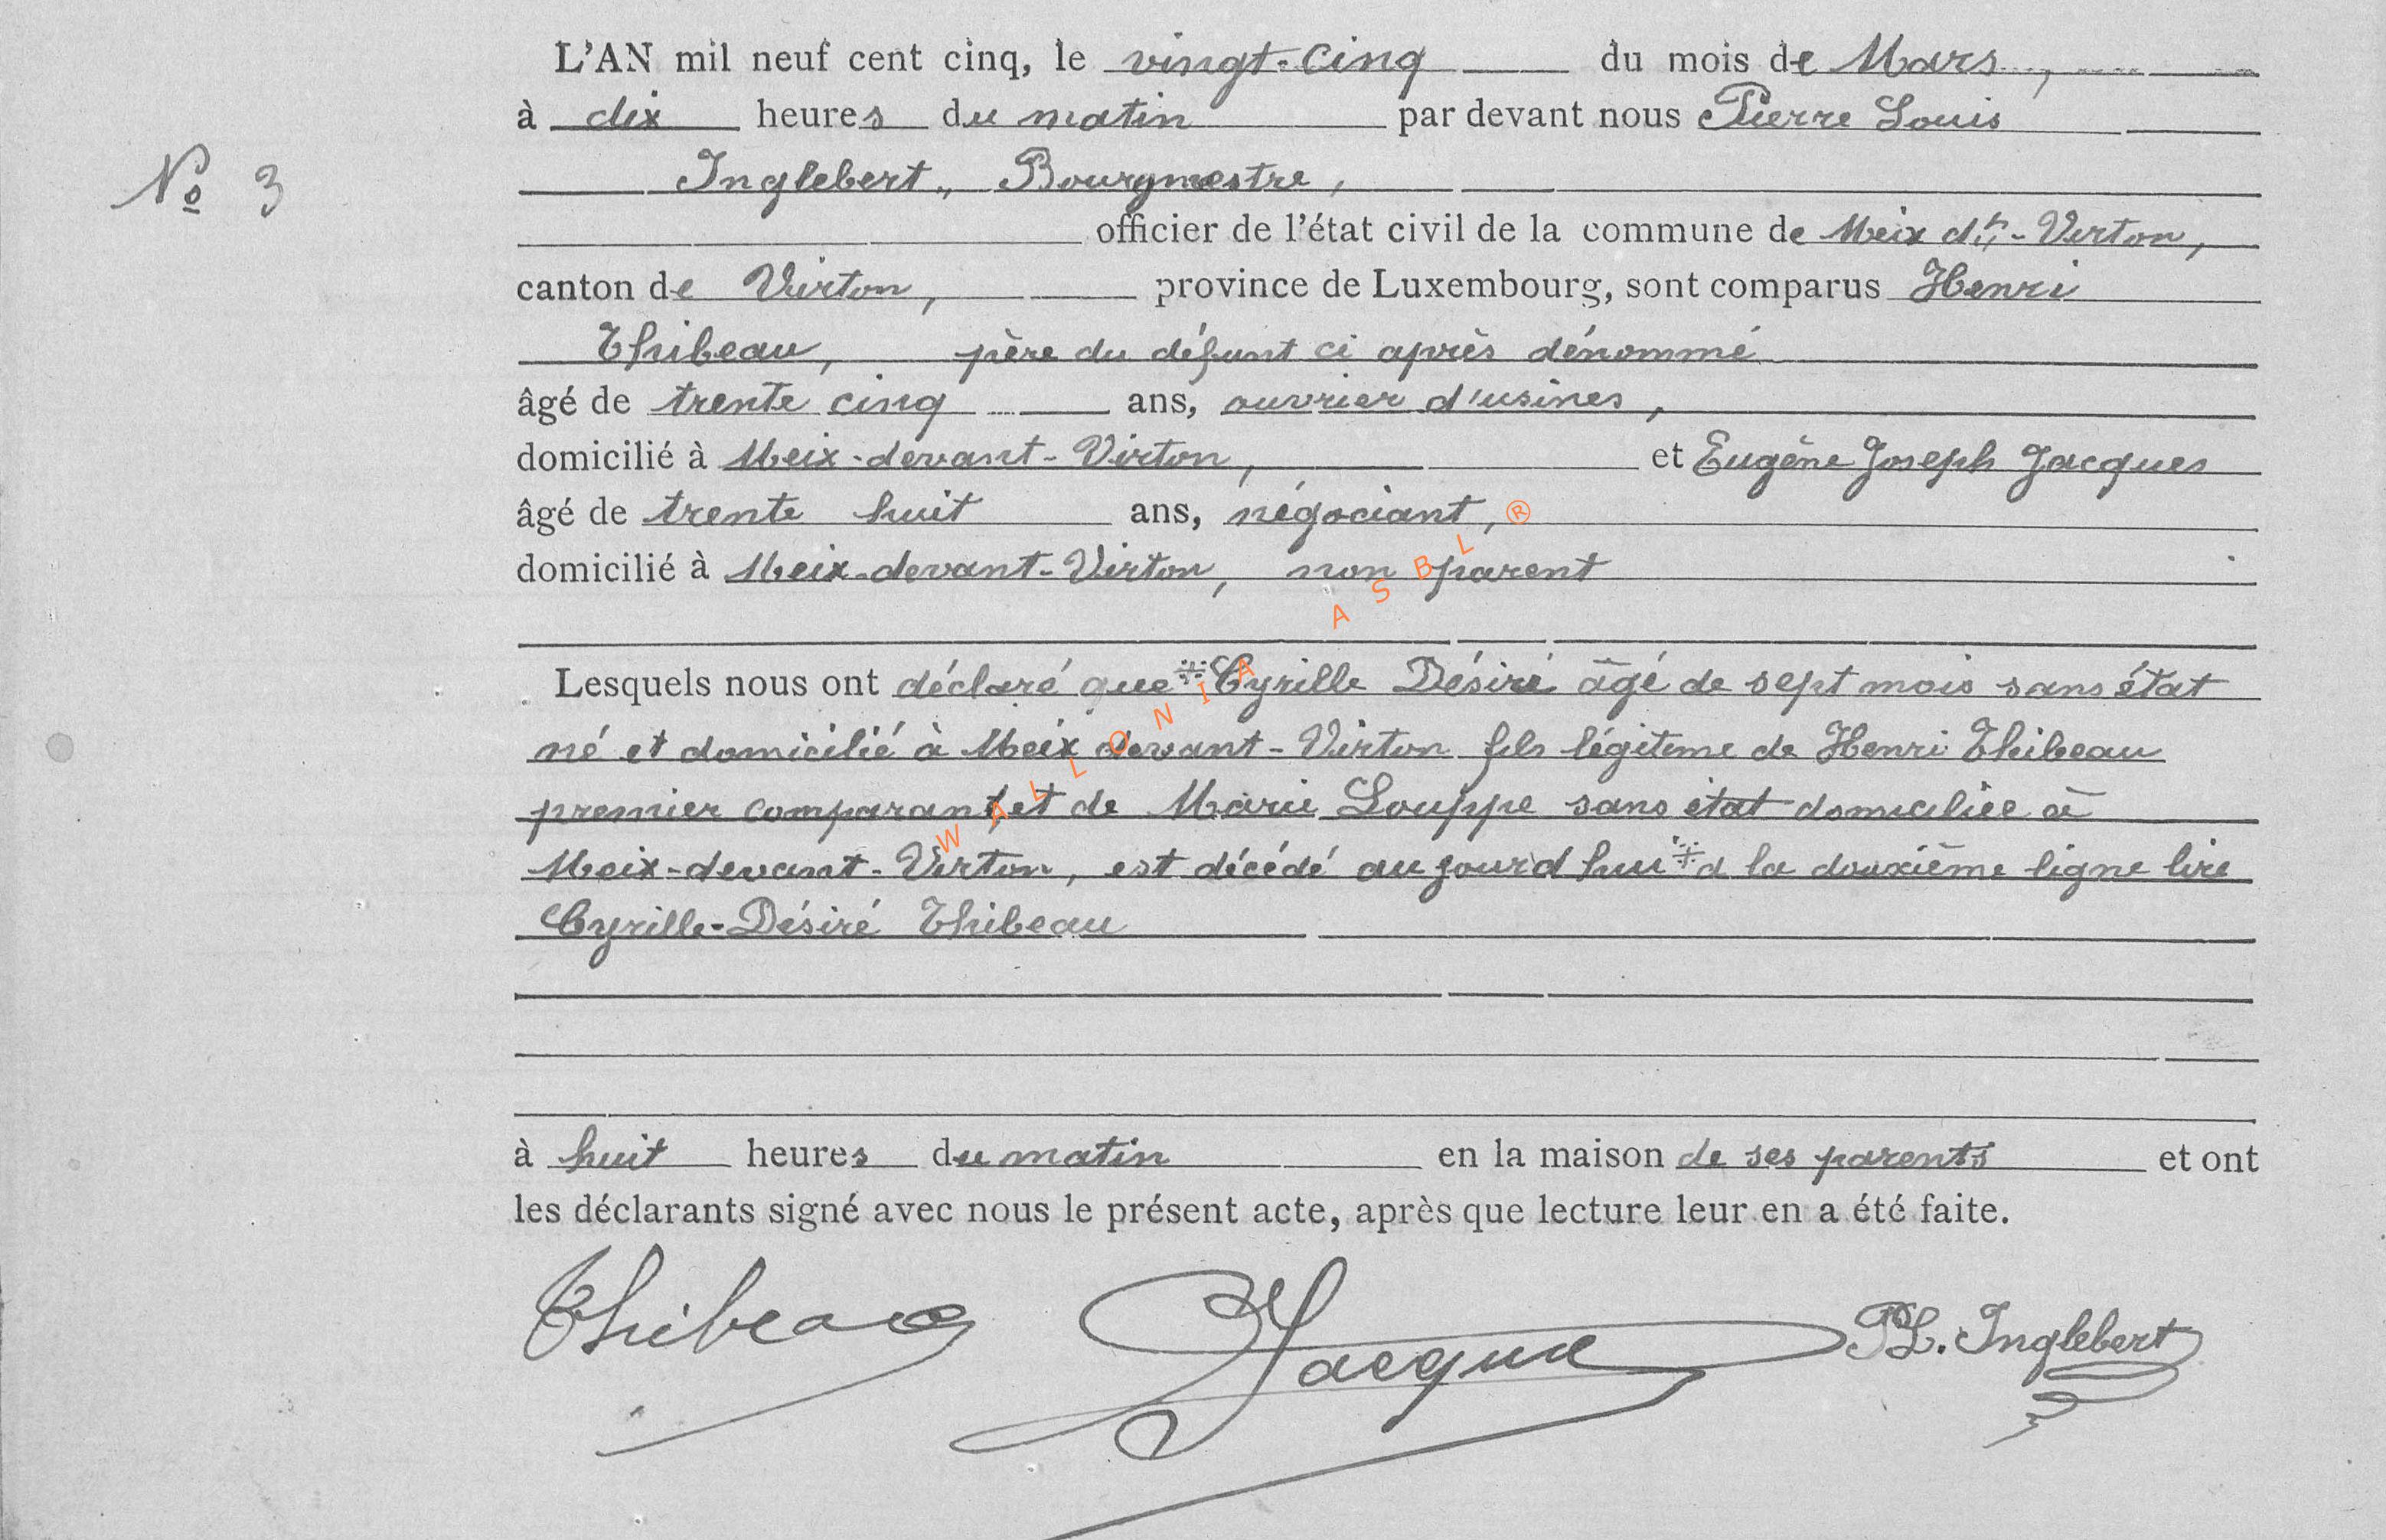 L'AN mil neuf cent cinq, le vingt-cinq du mois de Mars,
à dix heures du matin par devant nous Pierre Louis
Nº 3
Inglebert, Bourgmestre,
officier de l'état civil de la commune de Meix dt-Virton,
canton de Virton, province de Luxembourg, sont comparus Henri
Thibeau, père du défunt ci après dénommé
âgé de trente cinq ans, ouvrier d'usines,
domicilié à Meix-devant-Virton, et Eugène Joseph Jacques
âgé de trente huit ans, négociant, ®
domicilié à Meix-devant-Virton, non parent
WALLONIA ASBL
Lesquels nous ont déclaré que ※ Cyrille Désiré âgé de sept mois sans état
né et domicilié à Meix devant-Virton fils légitime de Henri Thibeau
premier comparant, et de Marie Louppe sans état domiciliée à
Meix-devant-Virton, est décédé aujourd'hui ※ à la douxième ligne lire
Cyrille-Désiré Thibeau
à huit heures du matin en la maison de ses parents et ont
les déclarants signé avec nous le présent acte, après que lecture leur en a été faite.
Thibeau Jacques PL. Inglebert